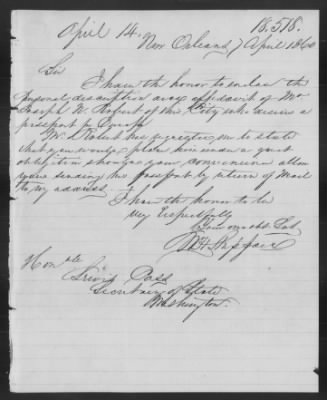 April 14. 18.518.
New Orleans, 7 April 1860
Sir
I have the honor to enclose the
personal description and affidavit of Mr
Joseph N. of this City who desires a
passport to
Mr. has me to state
that you would place him under a great
obligation should your convenience allow
your sending the passport by return of Mail
to my address.
I have the honor to be
very respectfully
Your most obt. Svt
Honble
Lewis Cass
Secretary of State
Washington.